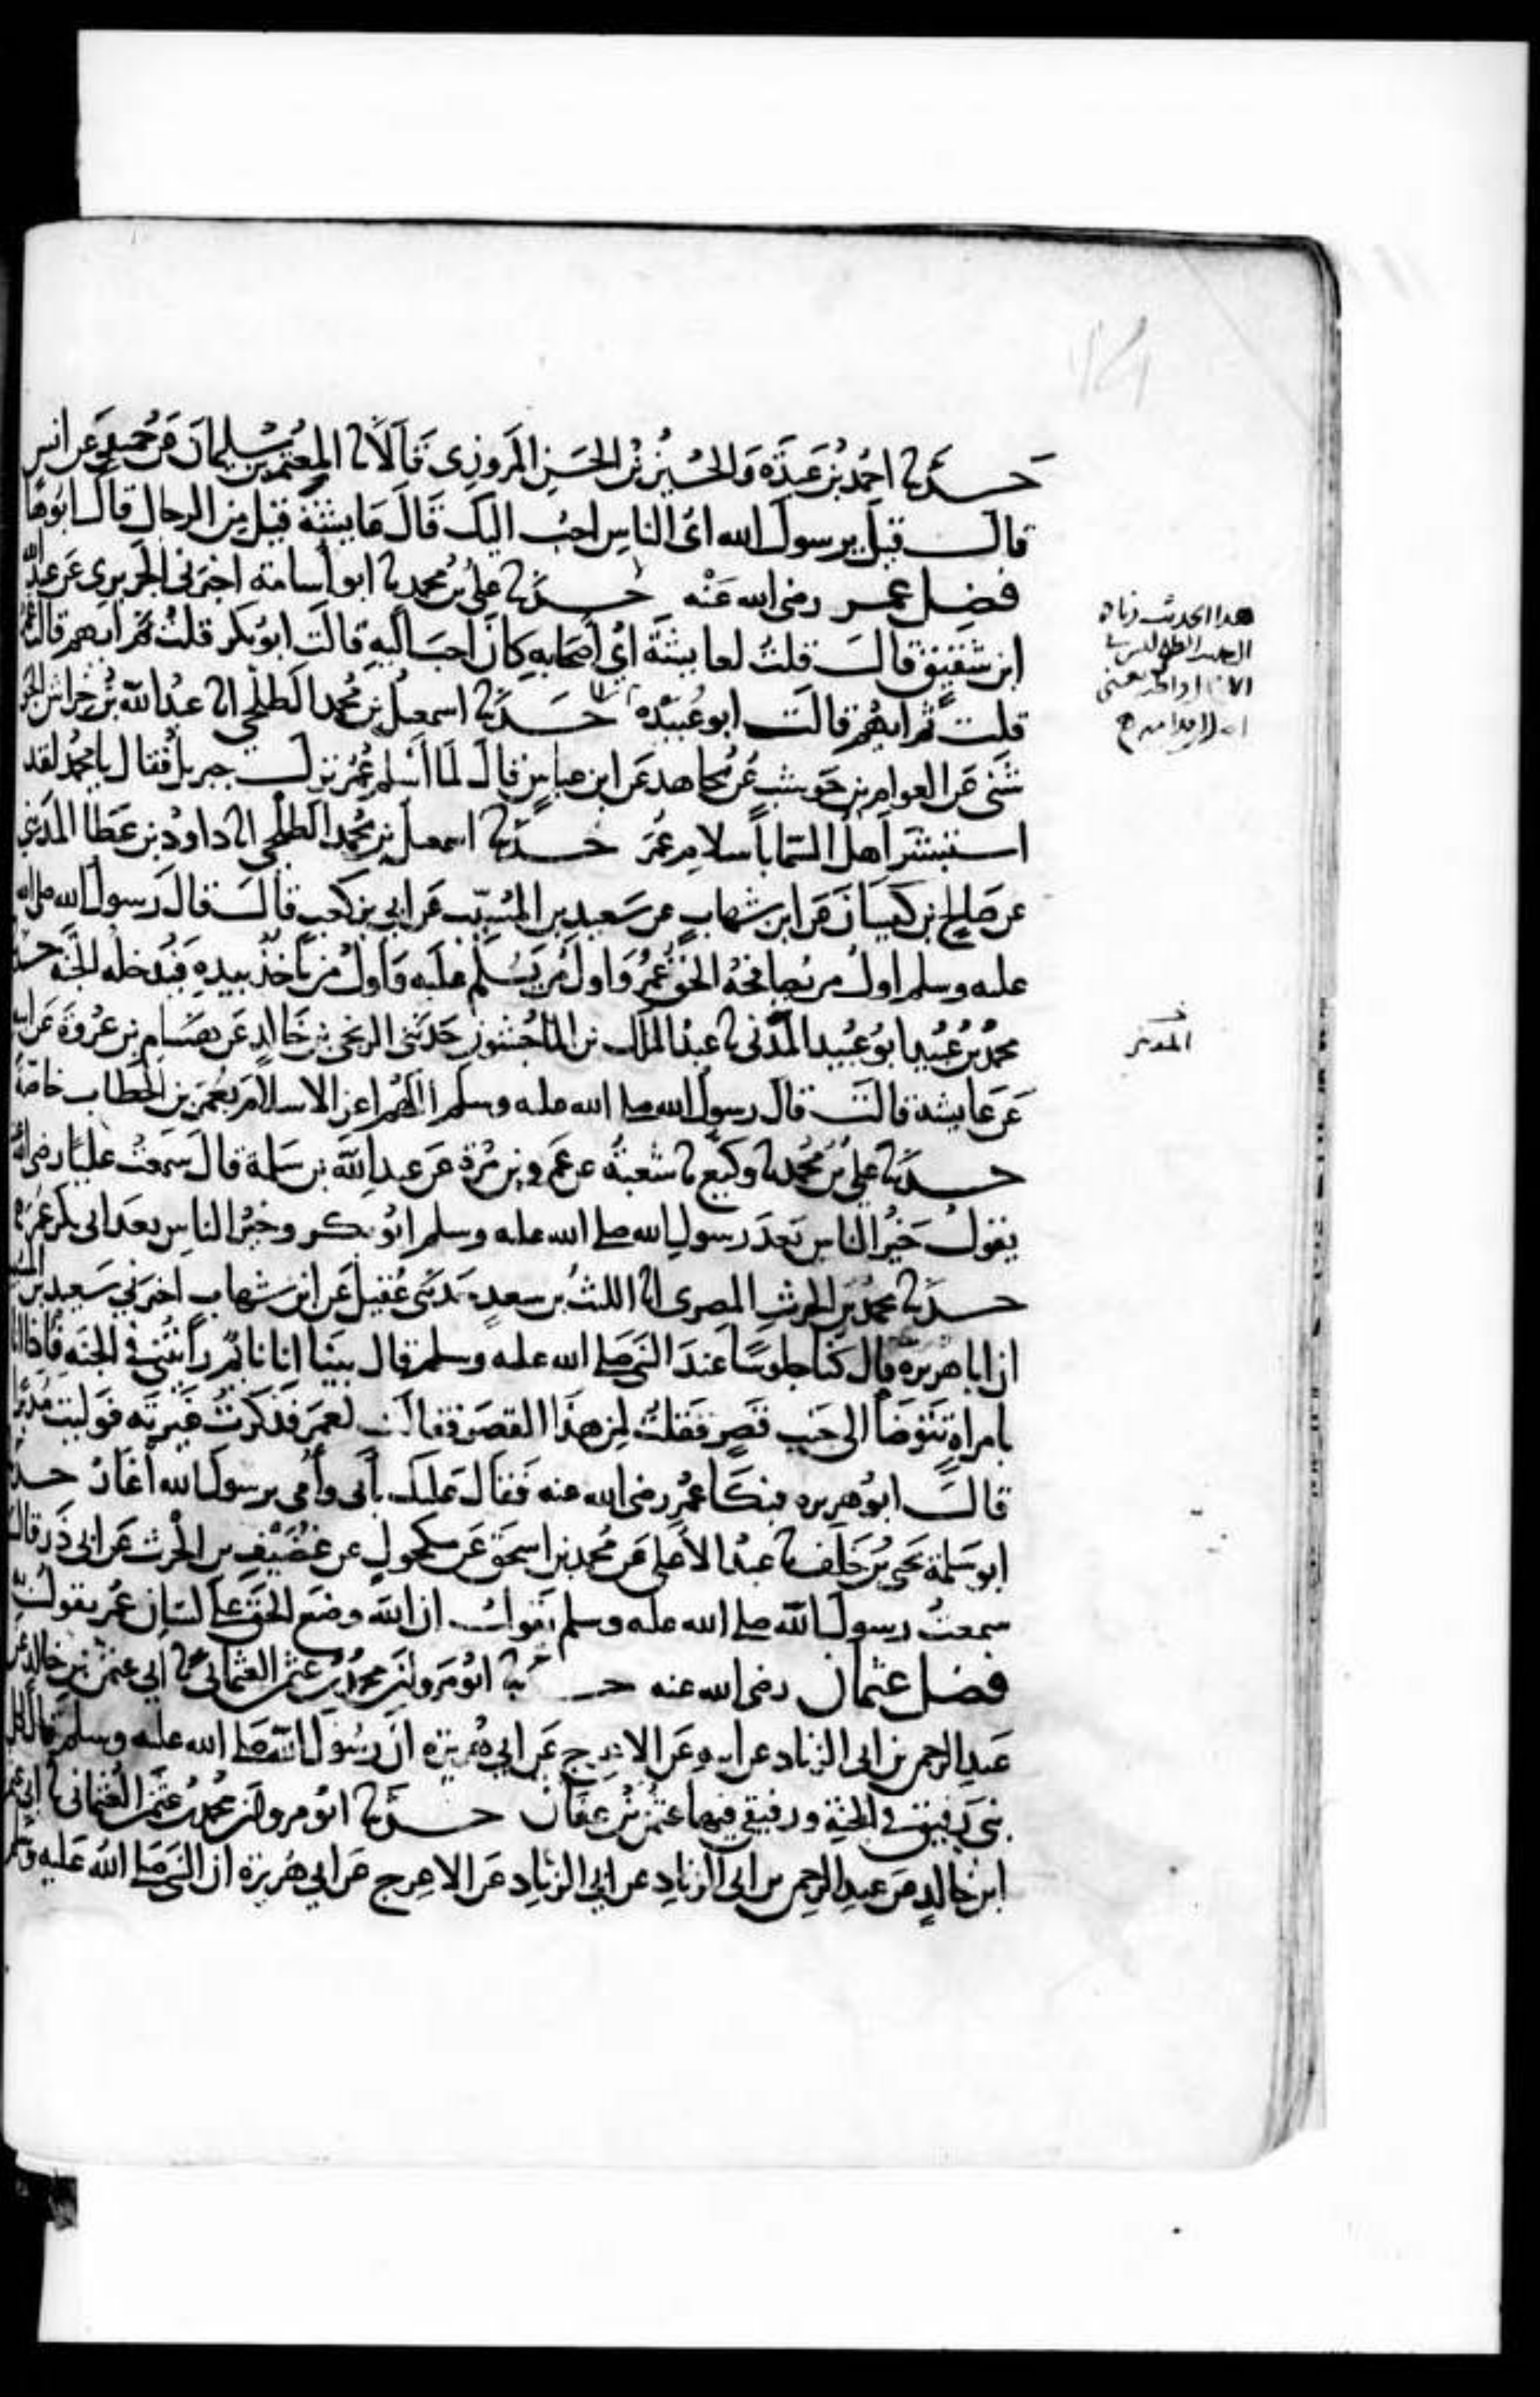 حدثنا احمد بن عبدة والحسين بن الحسن المروزي قالا نا المعتمر بن سليمان عن حميد عن انس
قال قيل يرسول الله اي الناس احب اليك قال عايشة قيل من الرجال قال ابوها
فضل عمر رضى الله عنه حدثنا علي بن محمد نا ابو اسامة اخبرني الجريري عن عبد الله
ابن شقيق قال قلت لعايشة اي اصحابه كان احب اليه قالت ابو بكر قلت ثم ايهم قالت عمر
قلت ثم ايهم قالت ابو عبيده حدثنا اسمعيل بن محمد الطلحي انا عبد الله بن خراش الحو
شبي عن العوام بن حوشب عن مجاهد عن ابن عباس قال لما اسلم عمر نزل جبريل فقال يا محمد لقد
استبشر اهل السما باسلام عمر حدثنا اسمعيل بن محمد الطلحي انا داود بن عطا المديني
عن صالح بن كيسان عن ابن شهاب عن سعيد بن المسيب عن ابي بن كعب قال قال رسول الله صلى الله
عليه وسلم اول من يصافحه الحق عمر واول من يسلم عليه واول من ياخذ بيده فيدخله الجنة حدثنا
محمد بن عبيد ابو عبيد المدني نا عبد الملك بن الماجشون حدثني الزنجي بن خالد عن هشام بن عروة عن ابيه
عن عايشة قالت قال رسول الله صلى الله عليه وسلم اللهم اعز الاسلام بعمر بن الخطاب خاصة
حدثنا علي بن محمد نا وكيع نا شعبة عن عمرو بن مرة عن عبد الله بن سلمة قال سمعت عليا رضى الله عنه
يقول خير الناس بعد رسول الله صلى الله عليه وسلم ابو بكر وخير الناس بعد ابي بكر عمر
حدثنا محمد بن الحرث المصري انا الليث بن سعد حدثني عقيل عن ابن شهاب اخبرني سعيد بن المسيب
ان ابا هريرة قال كنا جلوسا عند النبي صلى الله عليه وسلم قال بينا انا نايم رايتني في الجنة فاذا انا
بامراة تتوضا الى جنب قصر فقلت لمن هذا القصر فقالت لعمر فذكرت غيرته فوليت مدبرا
قال ابو هريره فبكا عمر رضى الله عنه فقال عليك بابي وامي يرسول الله اغار حدثنا
ابو سلمة يحيى بن خلف نا عبد الاعلى عن محمد بن اسحق عن مكحول عن غضيف بن الحرث عن ابي ذر قال
سمعت رسول الله صلى الله عليه وسلم يقول ان الله وضع الحق على لسان عمر يقول به
فضل عثمان رضى الله عنه حدثنا ابو مروان محمد بن عثمن العثماني نا ابي عثمن بن خالد عن
عبد الرحمن بن ابي الزناد عن ابيه عن الاعرج عن ابي هريرة ان رسول الله صلى الله عليه وسلم قال لكل
نبي رفيق في الجنة ورفيقي فيها عثمن بن عفان حدثنا ابو مروان محمد بن عثمن العثماني نا ابي عثمن
ابن خالد عن عبد الرحمن بن ابي الزناد عن ابي الزناد عن الاعرج عن ابي هريرة ان النبي صلى الله عليه وسلم
هدا الحديث زياه
المديني